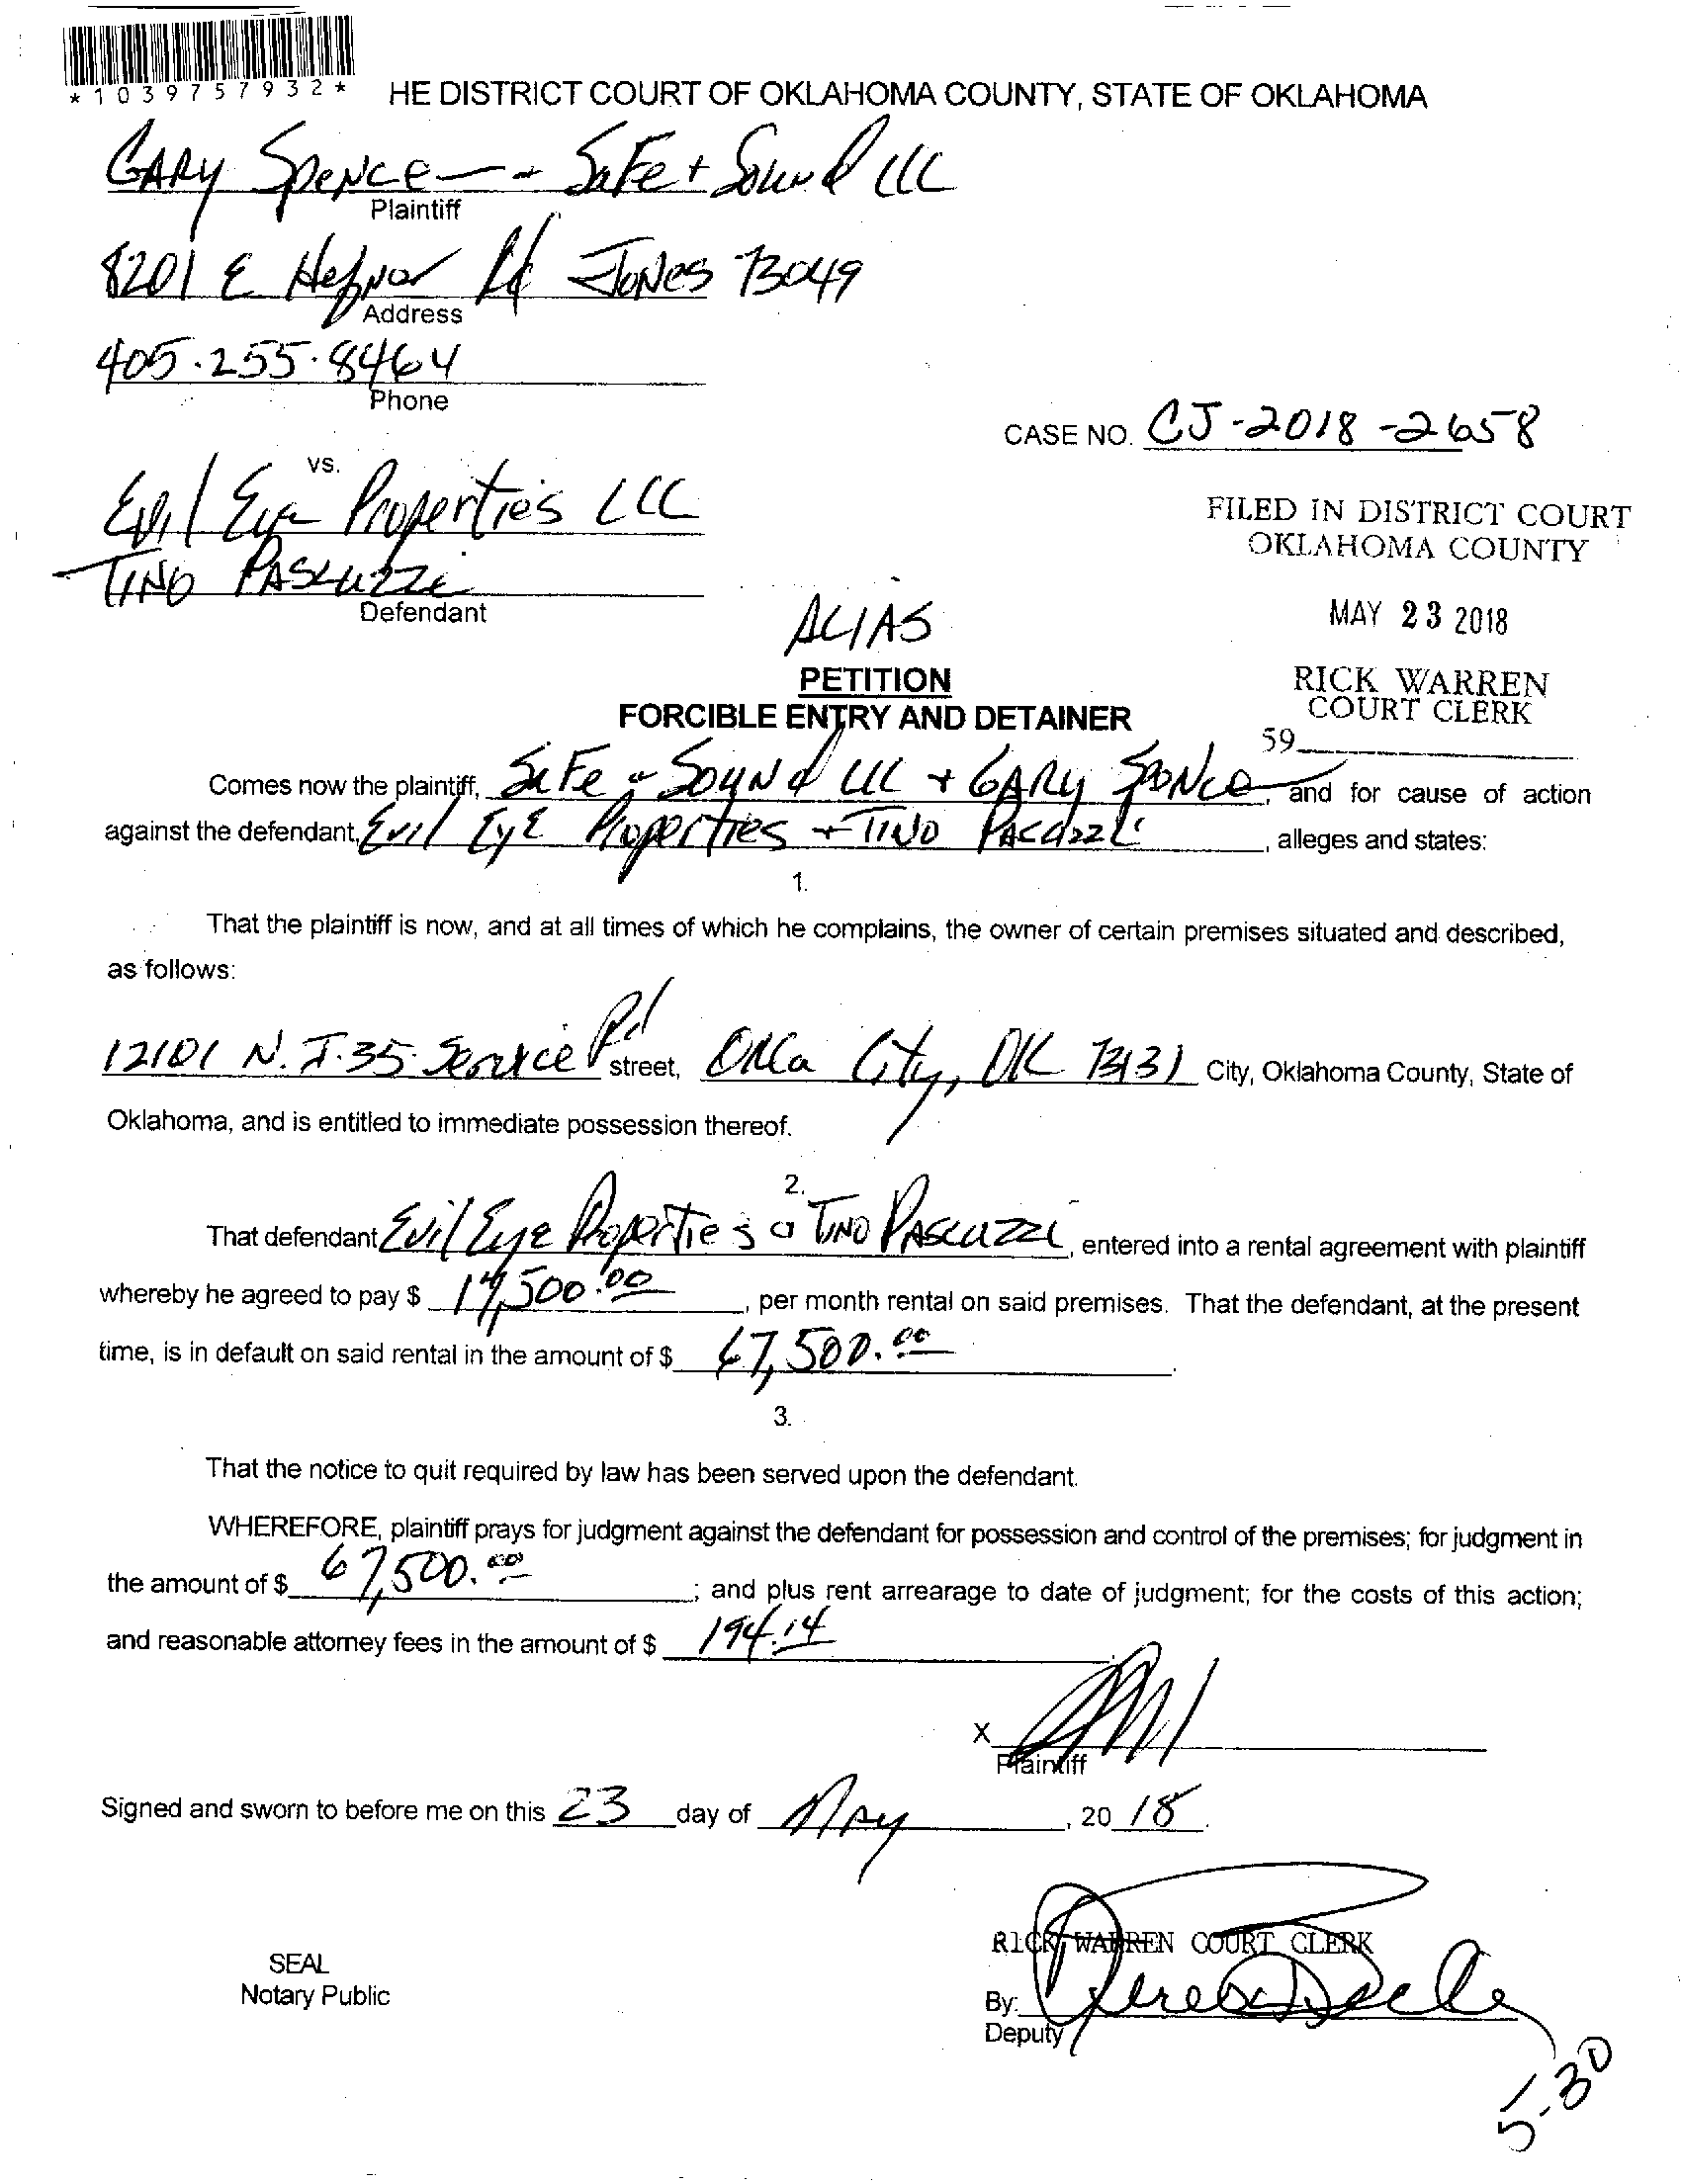 *1039757932*
HE DISTRICT COURT OF OKLAHOMA COUNTY, STATE OF OKLAHOMA
GARY SPENCE - Safe + Sound LLC
Plaintiff
8201 E Hefnor Rd JONES 73049
Address
405.255.8464
Phone
CASE NO. CJ-2018-2658
vs.
Evil Eye Properties LLC
FILED IN DISTRICT COURT
OKLAHOMA COUNTY
TINO PASCUZZI
Defendant
ALIAS
MAY 23 2018
PETITION
RICK WARREN
COURT CLERK
FORCIBLE ENTRY AND DETAINER
59
Comes now the plaintiff, SaFe + SOUNd LLC + GARY SPENCE, and for cause of action
against the defendant, Evil EyE Properties + TINO, alleges and states:
1.
That the plaintiff is now, and at all times of which he complains, the owner of certain premises situated and described,
as follows:
12101 N. I-35 Service Rd street, OKla City, OK 73131 City, Oklahoma County, State of
Oklahoma, and is entitled to immediate possession thereof.
2.
That defendant Evil Eye Properties + TINO PASCUZZI, entered into a rental agreement with plaintiff
whereby he agreed to pay $ 500.00, per month rental on said premises. That the defendant, at the present
time, is in default on said rental in the amount of $ 67,500.00.
3.
That the notice to quit required by law has been served upon the defendant.
WHEREFORE, plaintiff prays for judgment against the defendant for possession and control of the premises; for judgment in
the amount of $ 67,500.00; and plus rent arrearage to date of judgment; for the costs of this action;
and reasonable attorney fees in the amount of $ 194.14
X
Plaintiff
Signed and sworn to before me on this 23 day of MAy, 20 18.
SEAL
Notary Public
RICK WARREN COURT CLERK
By:
Deputy
5-30